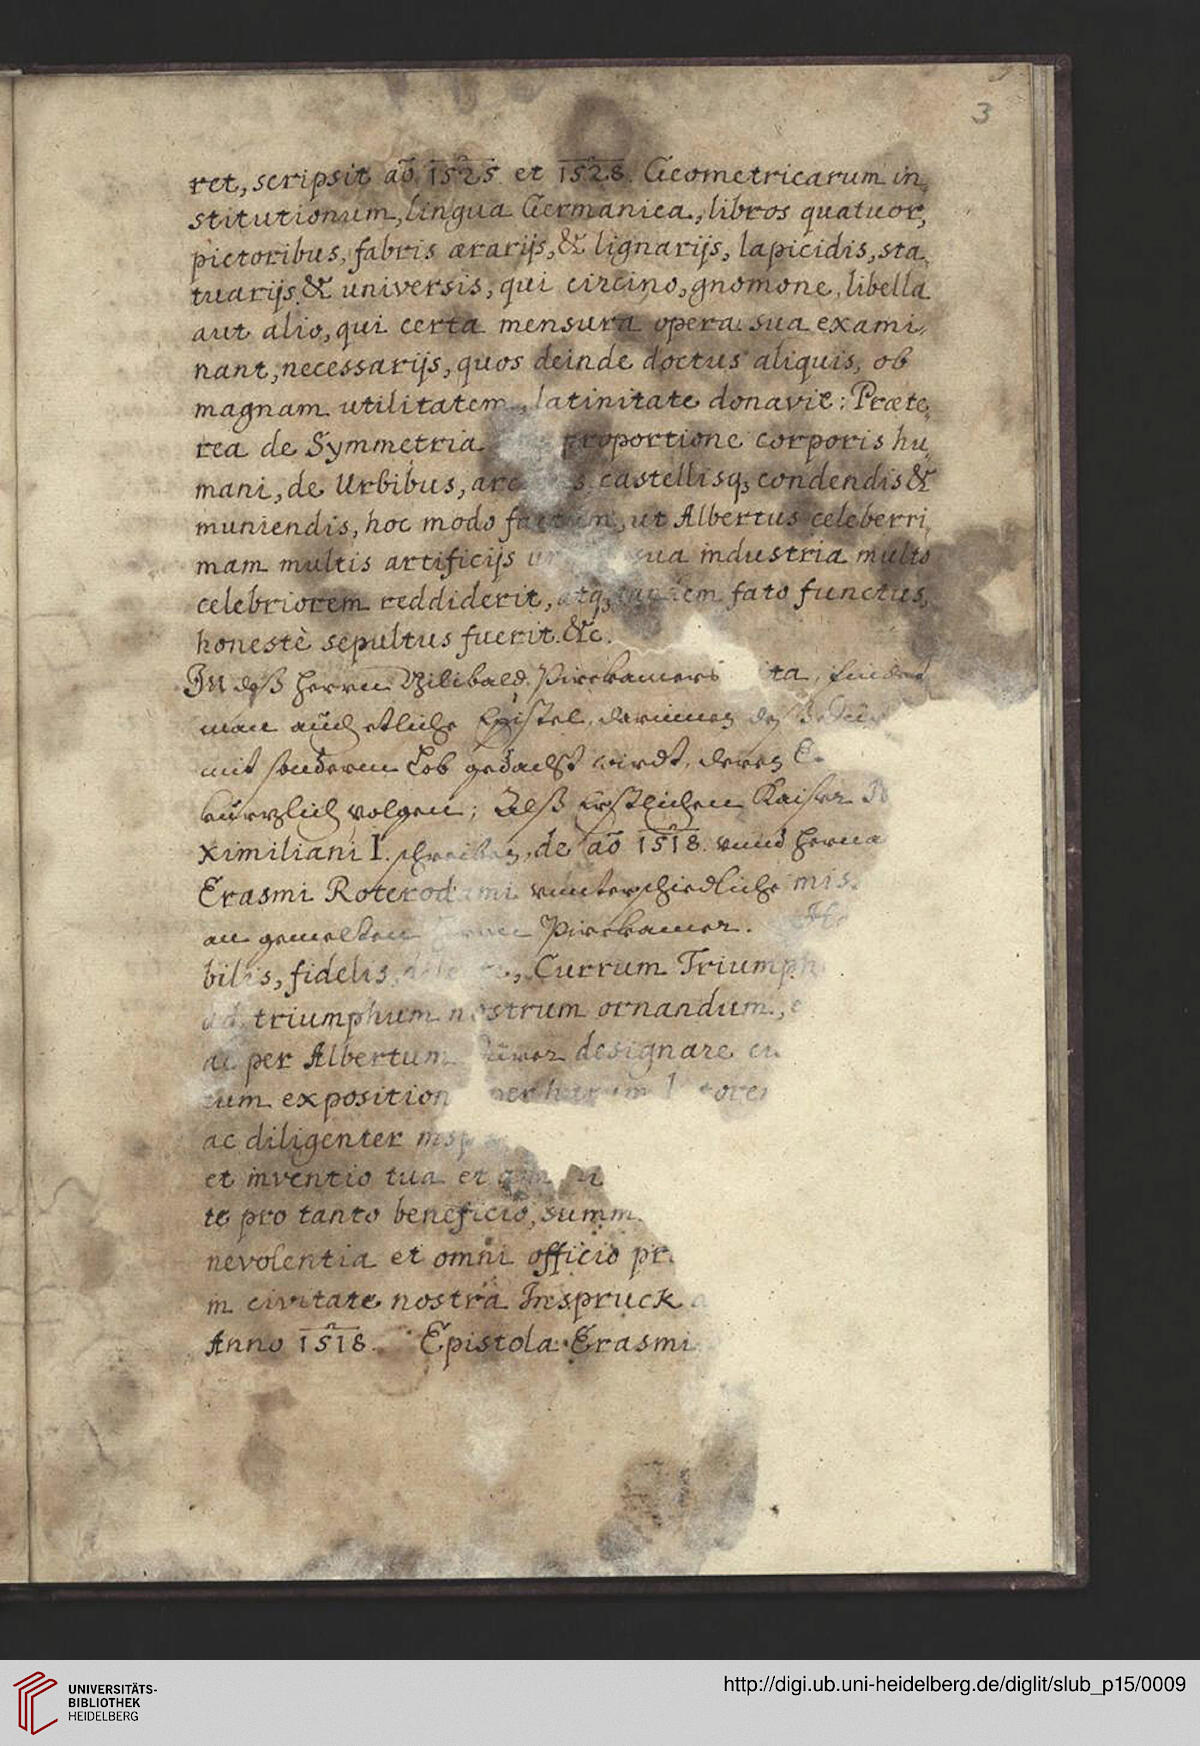 3
ret, scripsit aõ 1525 et 1528. Geometricarum in,
stitutionum, lingua Germanica, libros quatuor,
pictoribus, fabris ærarijs, & lignarijs, lapicidis, sta,
tuarijs & universis, qui circino, gnomone, libella
aut alio, qui certa mensura opera sua exami,
nant, necessarijs, quos deinde doctus aliquis, ob
magnam utilitatem, latinitate donavit: Præte,
rea de Symmetria proportione corporis hu,
mani, de Urbibus, castellisq, condendis &
muniendis, hoc modo ut Albertus celeberri,
mam multis artificijs sua industria multo
celebriorem reddiderit, fato functus,
honestè sepultus fuerit. &c.
In deß Herrn Bilibald. Pirckamers findet
man auch etliche Epistel, darinnen
mit sonderm Lob gedacht wirdt, deren
kürtzlich volgen; Alß Erstlichen Kaiser
ximiliani I. schreiben, de aõ 1518. vnnd herna
Erasmi Roterodami vnnterschiedliche mis
an gemelten Herrn Pirckamer.
bilis, fidelis, Currum Triumph
ad triumphum nostrum ornandum,
ac per Albertum Dürer designare cu
tum exposition
ac diligenter insp
et inventio tua et
te pro tanto beneficio, summ
nevolentia et omni officio pr
in civitate nostra Inspruck
Anno 1518. Epistola Erasmi
UNIVERSITÄTS-
BIBLIOTHEK
HEIDELBERG
http://digi.ub.uni-heidelberg.de/diglit/slub_p15/0009